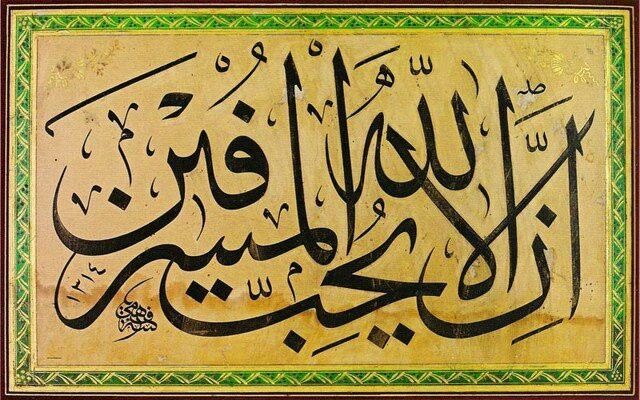 انّ الله لا يحبّ المسرفين
١٣١٤